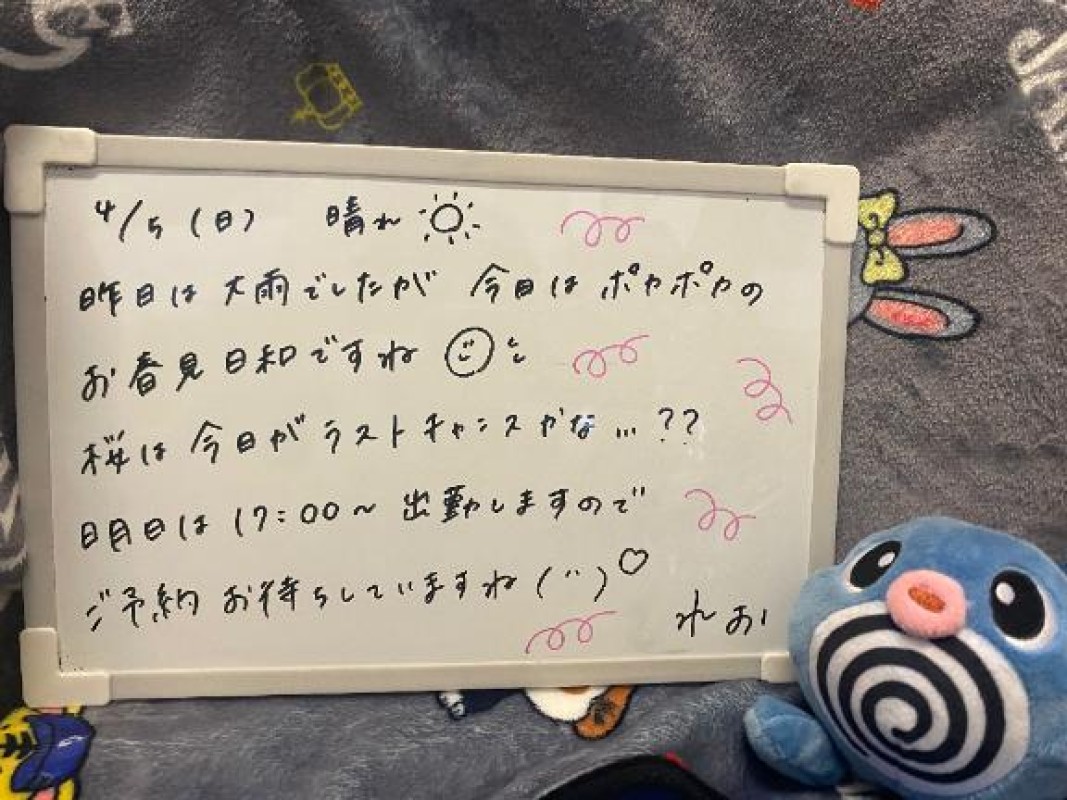 4/5(日) 晴れ
昨日は大雨でしたが 今日はポカポカの
お春見日和ですね
桜は今日がラストチャンスかな…??
明日は17:00~出勤しますので
ご予約お待ちしていますね(¨)♡
れお